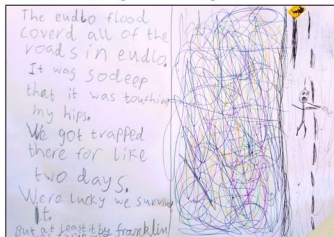 The eudlo flood
coverd all of the
roads in eudlo.
It was so deep
that it was touching
my hips.
We got trapped
there for like
two days.
Were lucky we survive
It.
But at least it by franklin